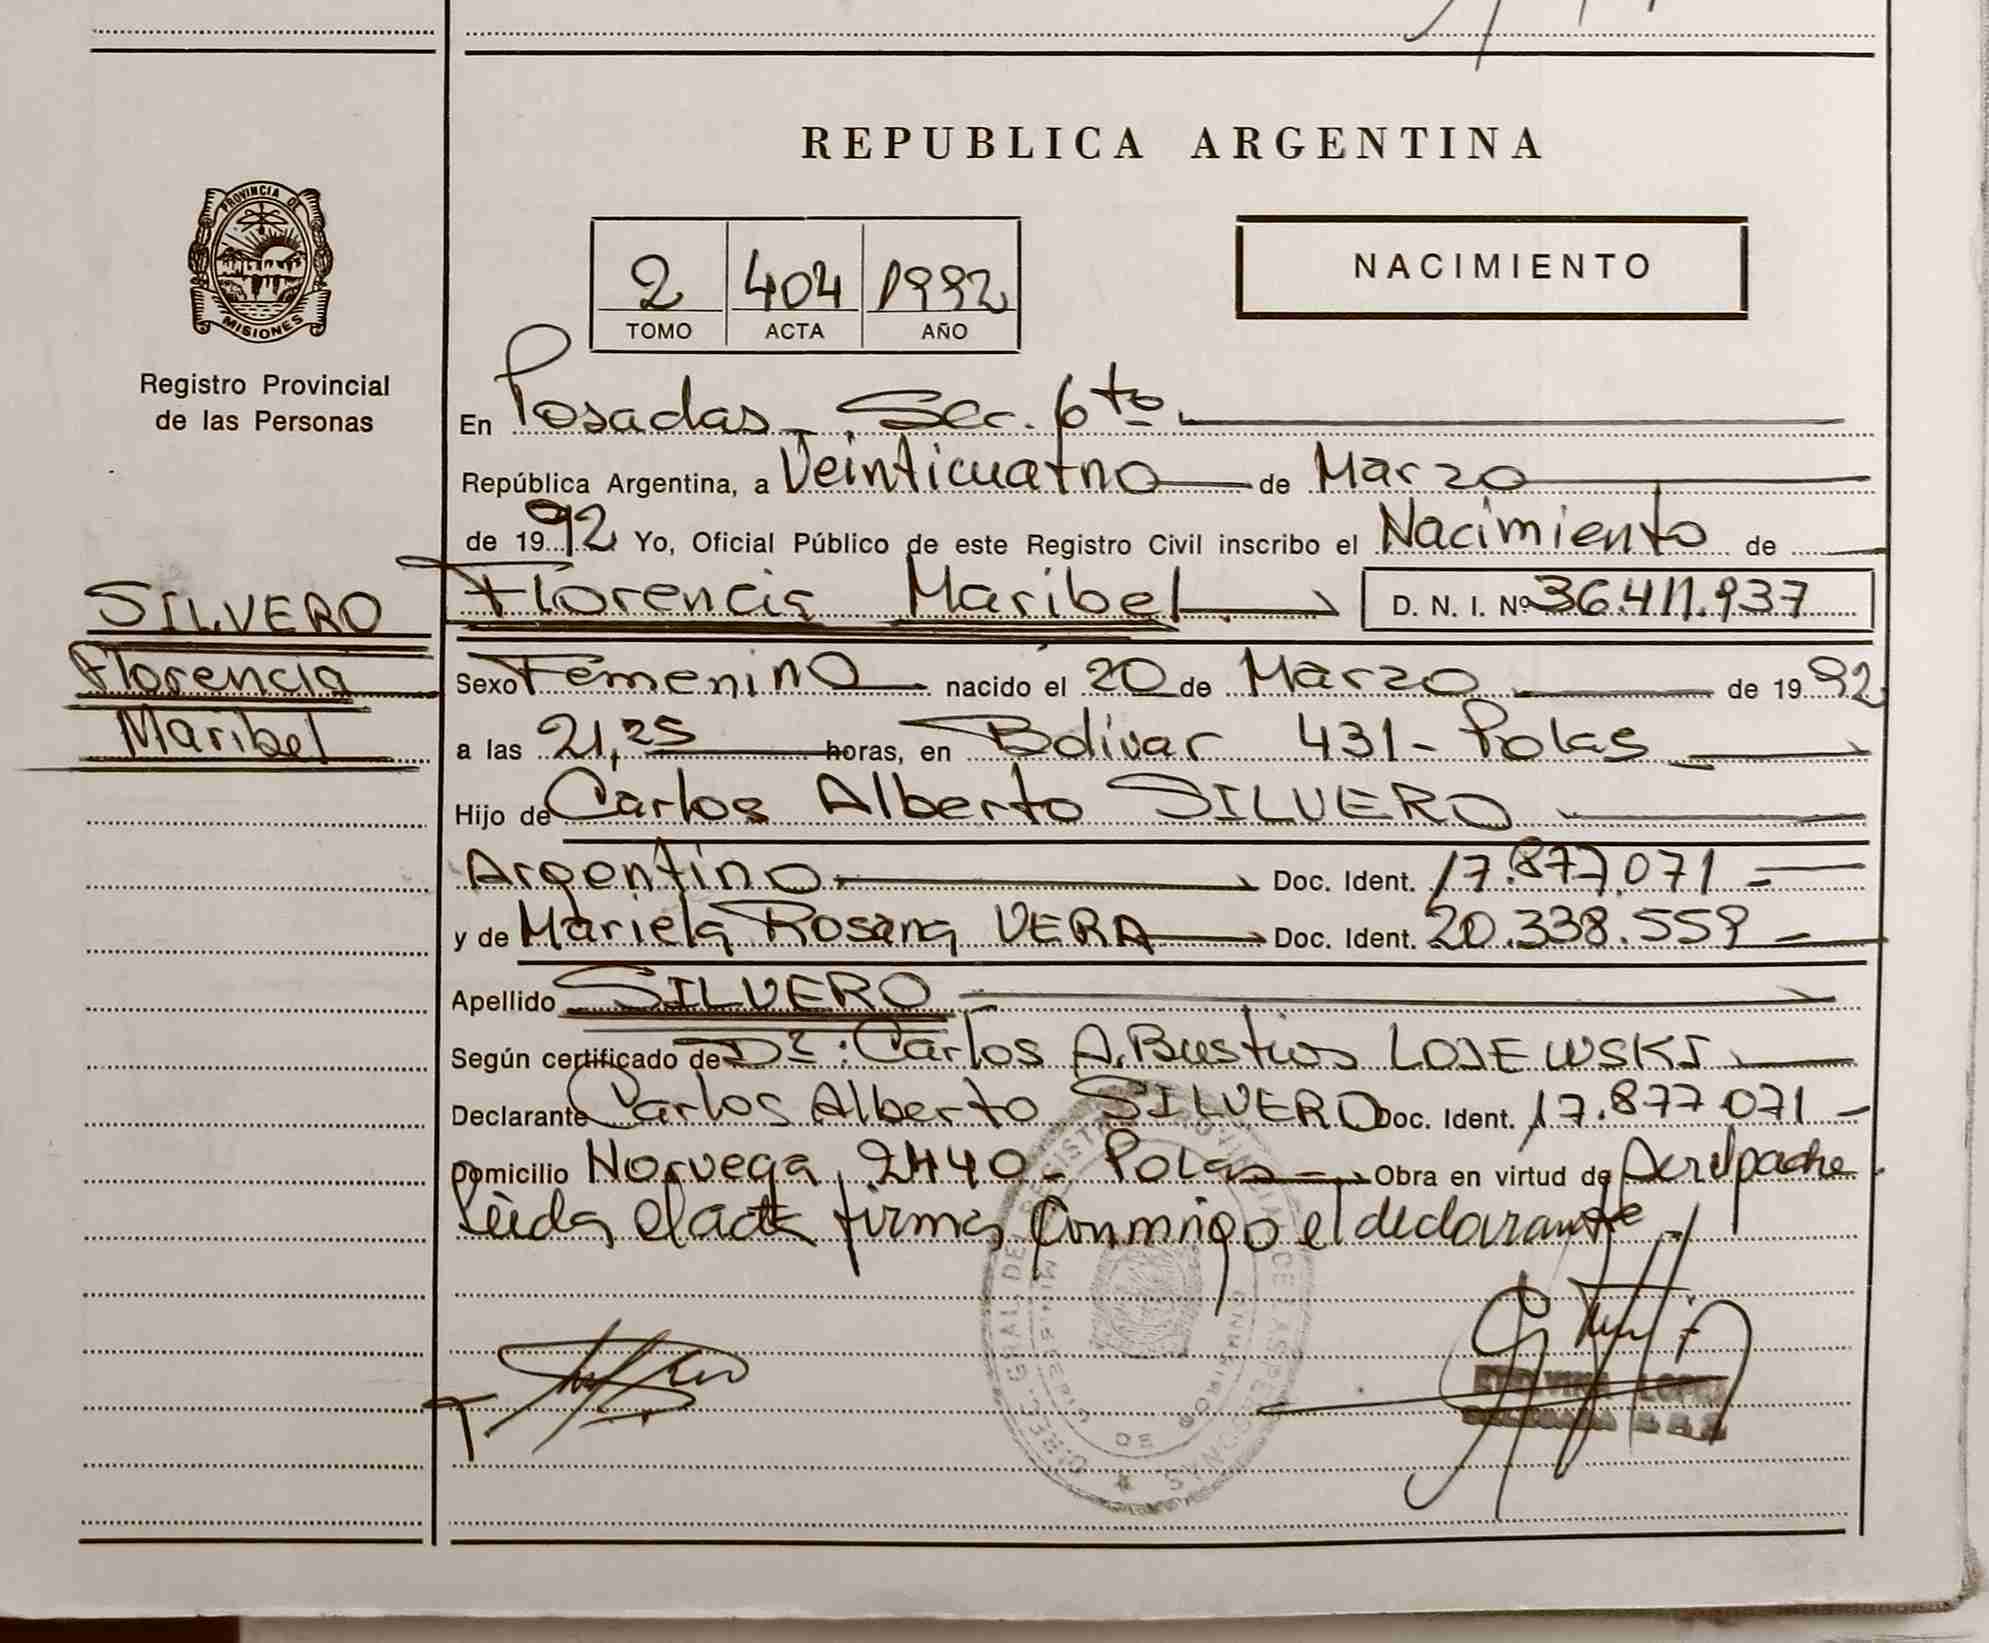 REPUBLICA ARGENTINA
PROVINCIA DE
MISIONES
Registro Provincial
de las Personas
2 404 1992
TOMO ACTA AÑO
NACIMIENTO
En Posadas Sec. 6to
República Argentina, a Veinticuatro de Marzo
de 1992 Yo, Oficial Público de este Registro Civil inscribo el Nacimiento de
SILVERO
Florencia
Maribel
Florencia Maribel D. N. I. Nº 36.411.937
Sexo Femenino nacido el 20 de Marzo de 1992
a las 21,25 horas, en Bolivar 431 - Pdas
Hijo de Carlos Alberto SILVERO
Argentino Doc. Ident. 17.877.071
y de Mariela Rosana VERA Doc. Ident. 20.338.559
Apellido SILVERO
Según certificado de Dr: Carlos A. Bustios LOJEWSKI
Declarante Carlos Alberto SILVERO Doc. Ident. 17.877.071
Domicilio Norvega 2440 - Pdas Obra en virtud de
Leida el acta firma conmigo el declarante
DIREC. GRAL. DEL REGISTRO PROVINCIAL DE LAS PERSONAS
LOPEZ